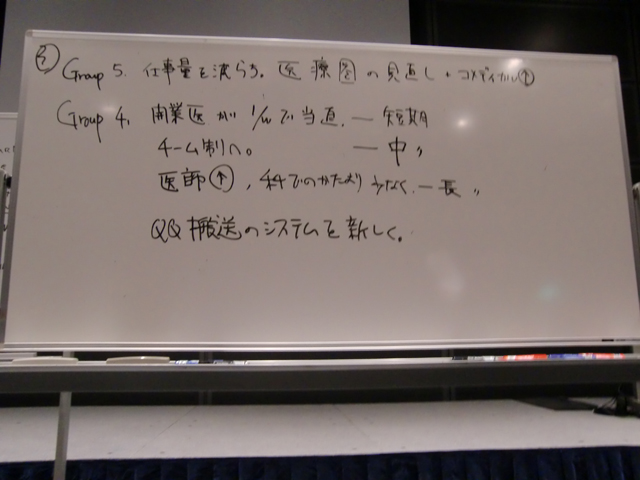 ③ Group 5. 仕事量を減らす。医療圏の見直し + コメディカル↑
Group 4. 開業医が 1/Wで当直. — 短期
チーム制へ。 — 中〃
医師↑, 科でのかたより少なく. — 長〃
QQ搬送のシステムを新しく。